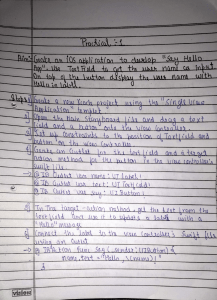 Practical :- 1
Aim: Create an iOS application to develop "Say Hello
App". Use TextField to get the user name as input
On top of the button display the user name with
Hello in label.
Steps: Create a new Xcode project using the "Single View
Application" template
Open the Main Storyboard file and drag a text
field and a button onto the View Controller.
Set up constraints to the position of TextField and
button on the view controller
Create an outlet for the TextField and a target
action method for the button in the view controller's
swift file
@IB Outlet var name: UILabel!
@IB Outlet var text: UITextField!
@IB Outlet var say: UIButton!
In the target-action method get the text from the
textField and use it to update a label with a
"Hello" message
Connect the label to the view controller's Swift file
using an outlet
@IBAction func Say(_ sender: UIButton) {
name.text = "Hello,
vision